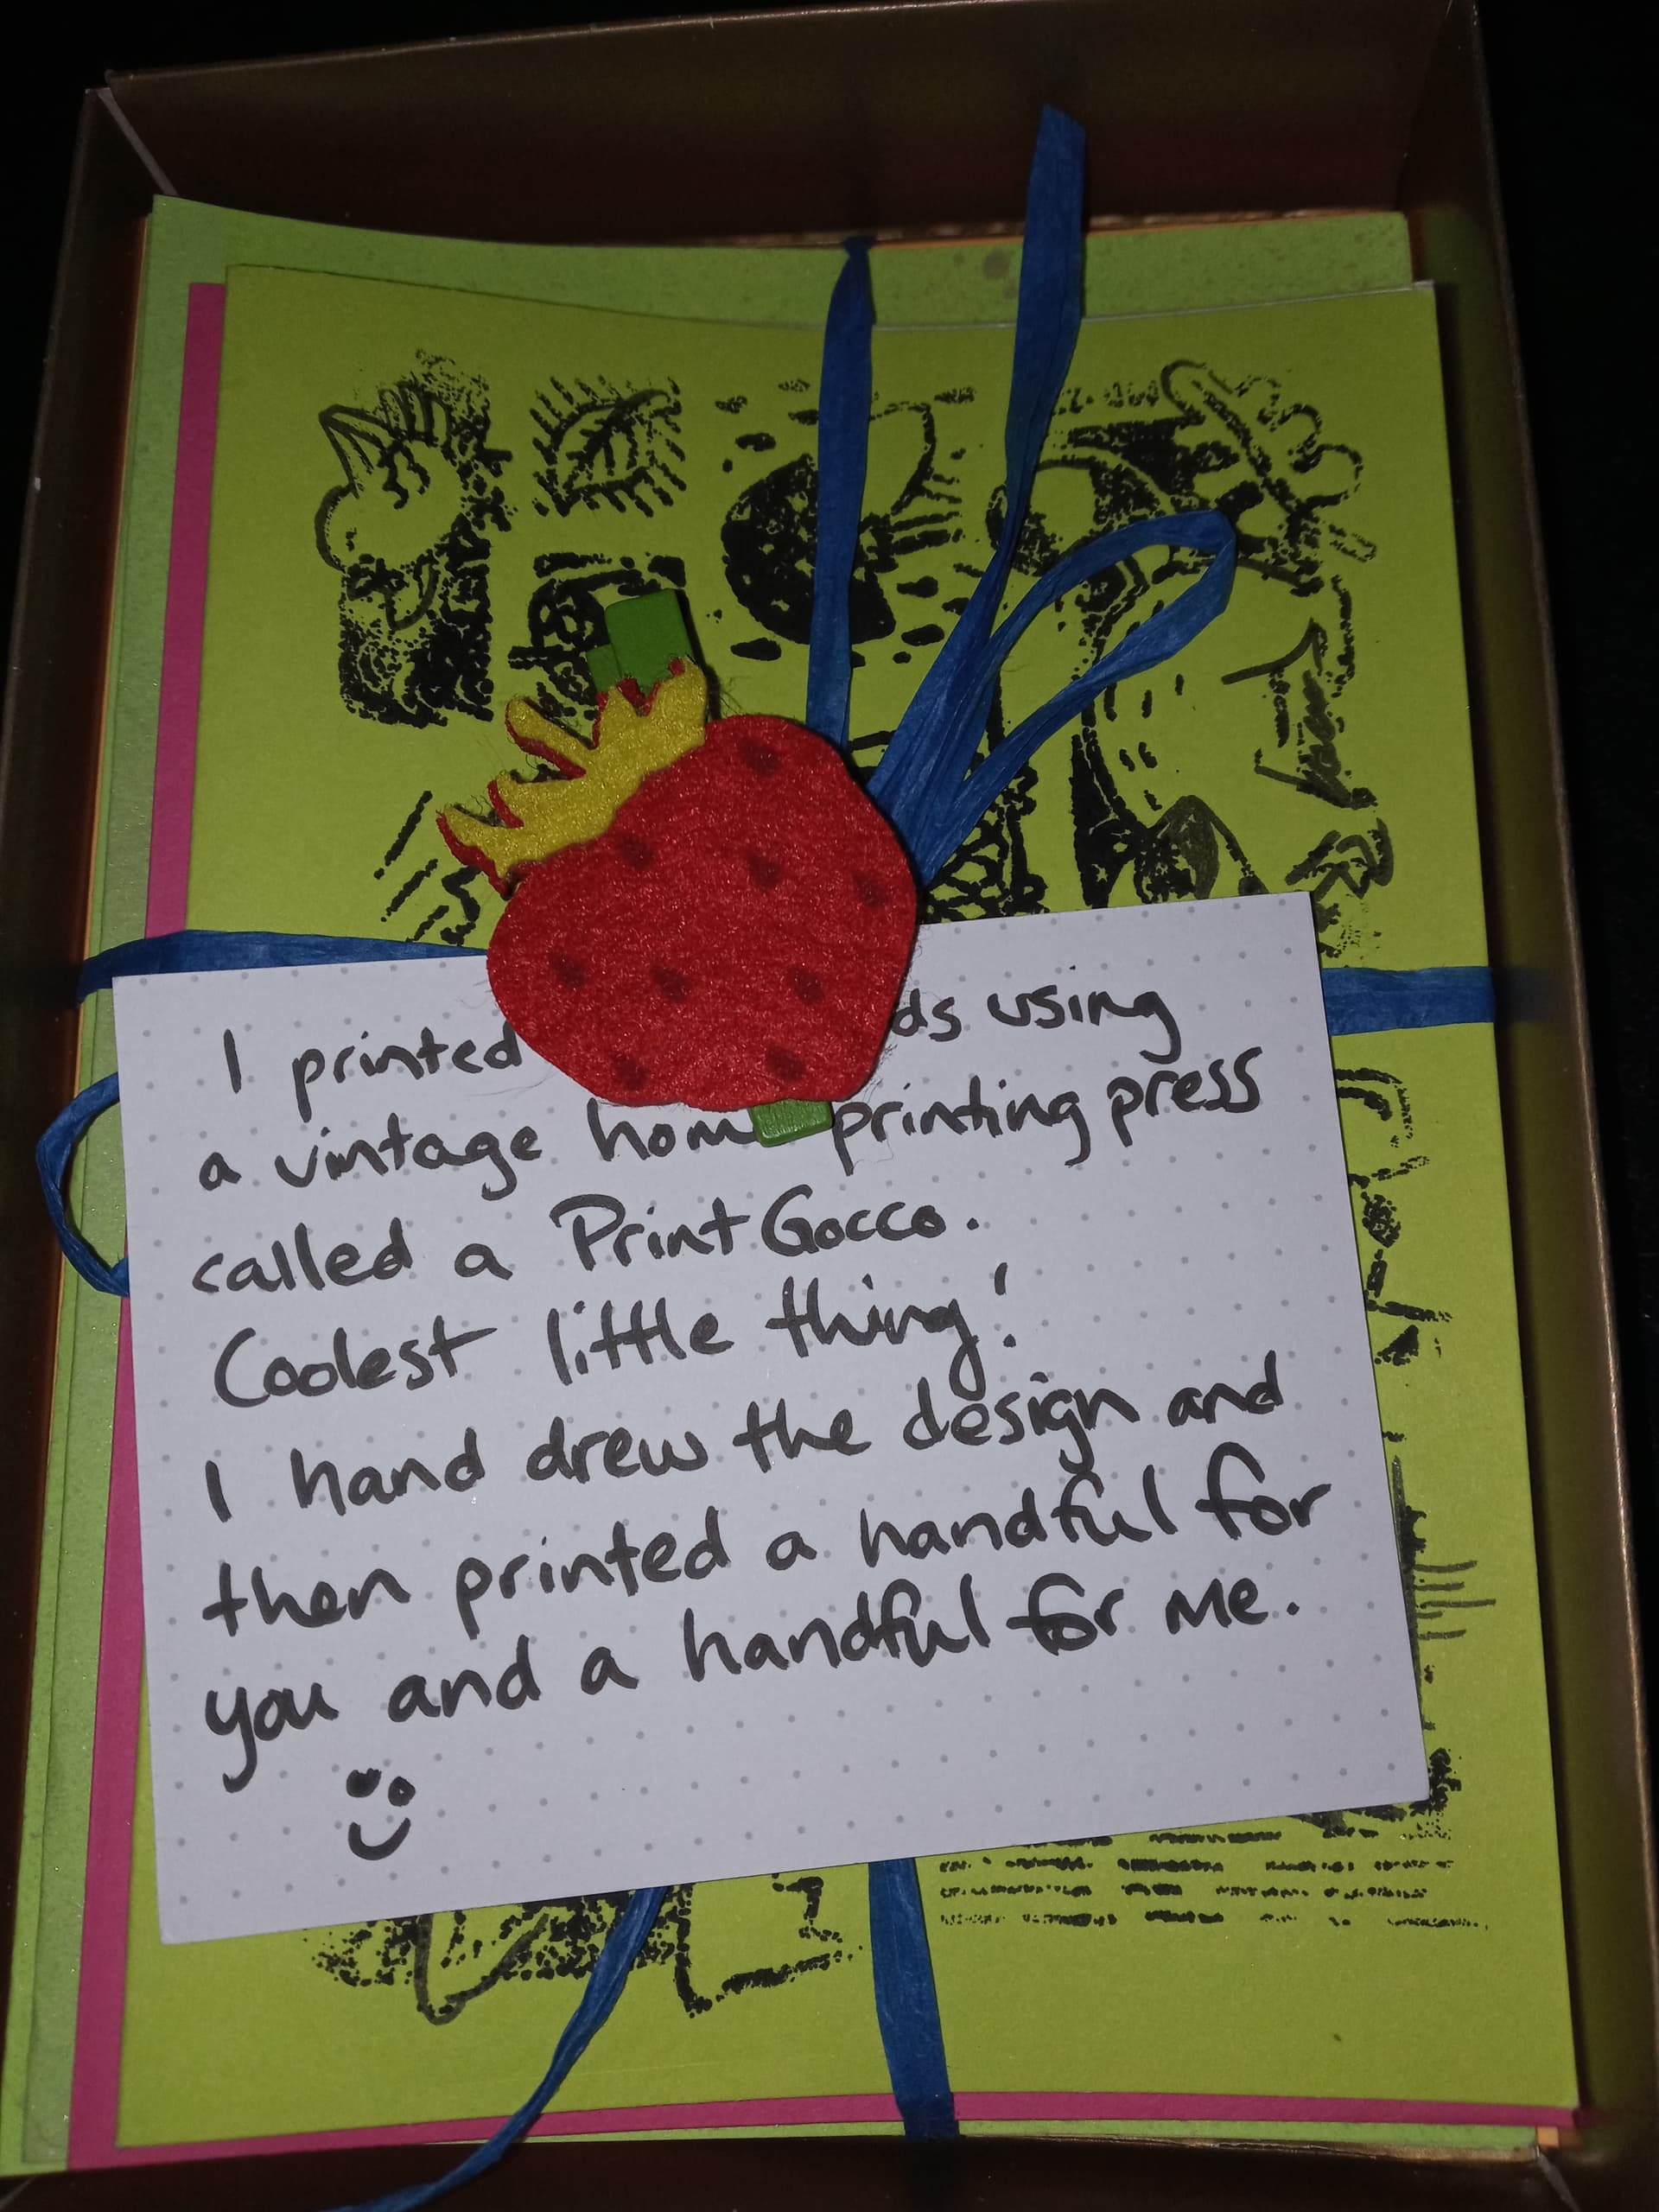 I printed ds using
a vintage hom printing press
called a Print Gocco.
Coolest little thing!
I hand drew the design and
then printed a handful for
you and a handful for me.